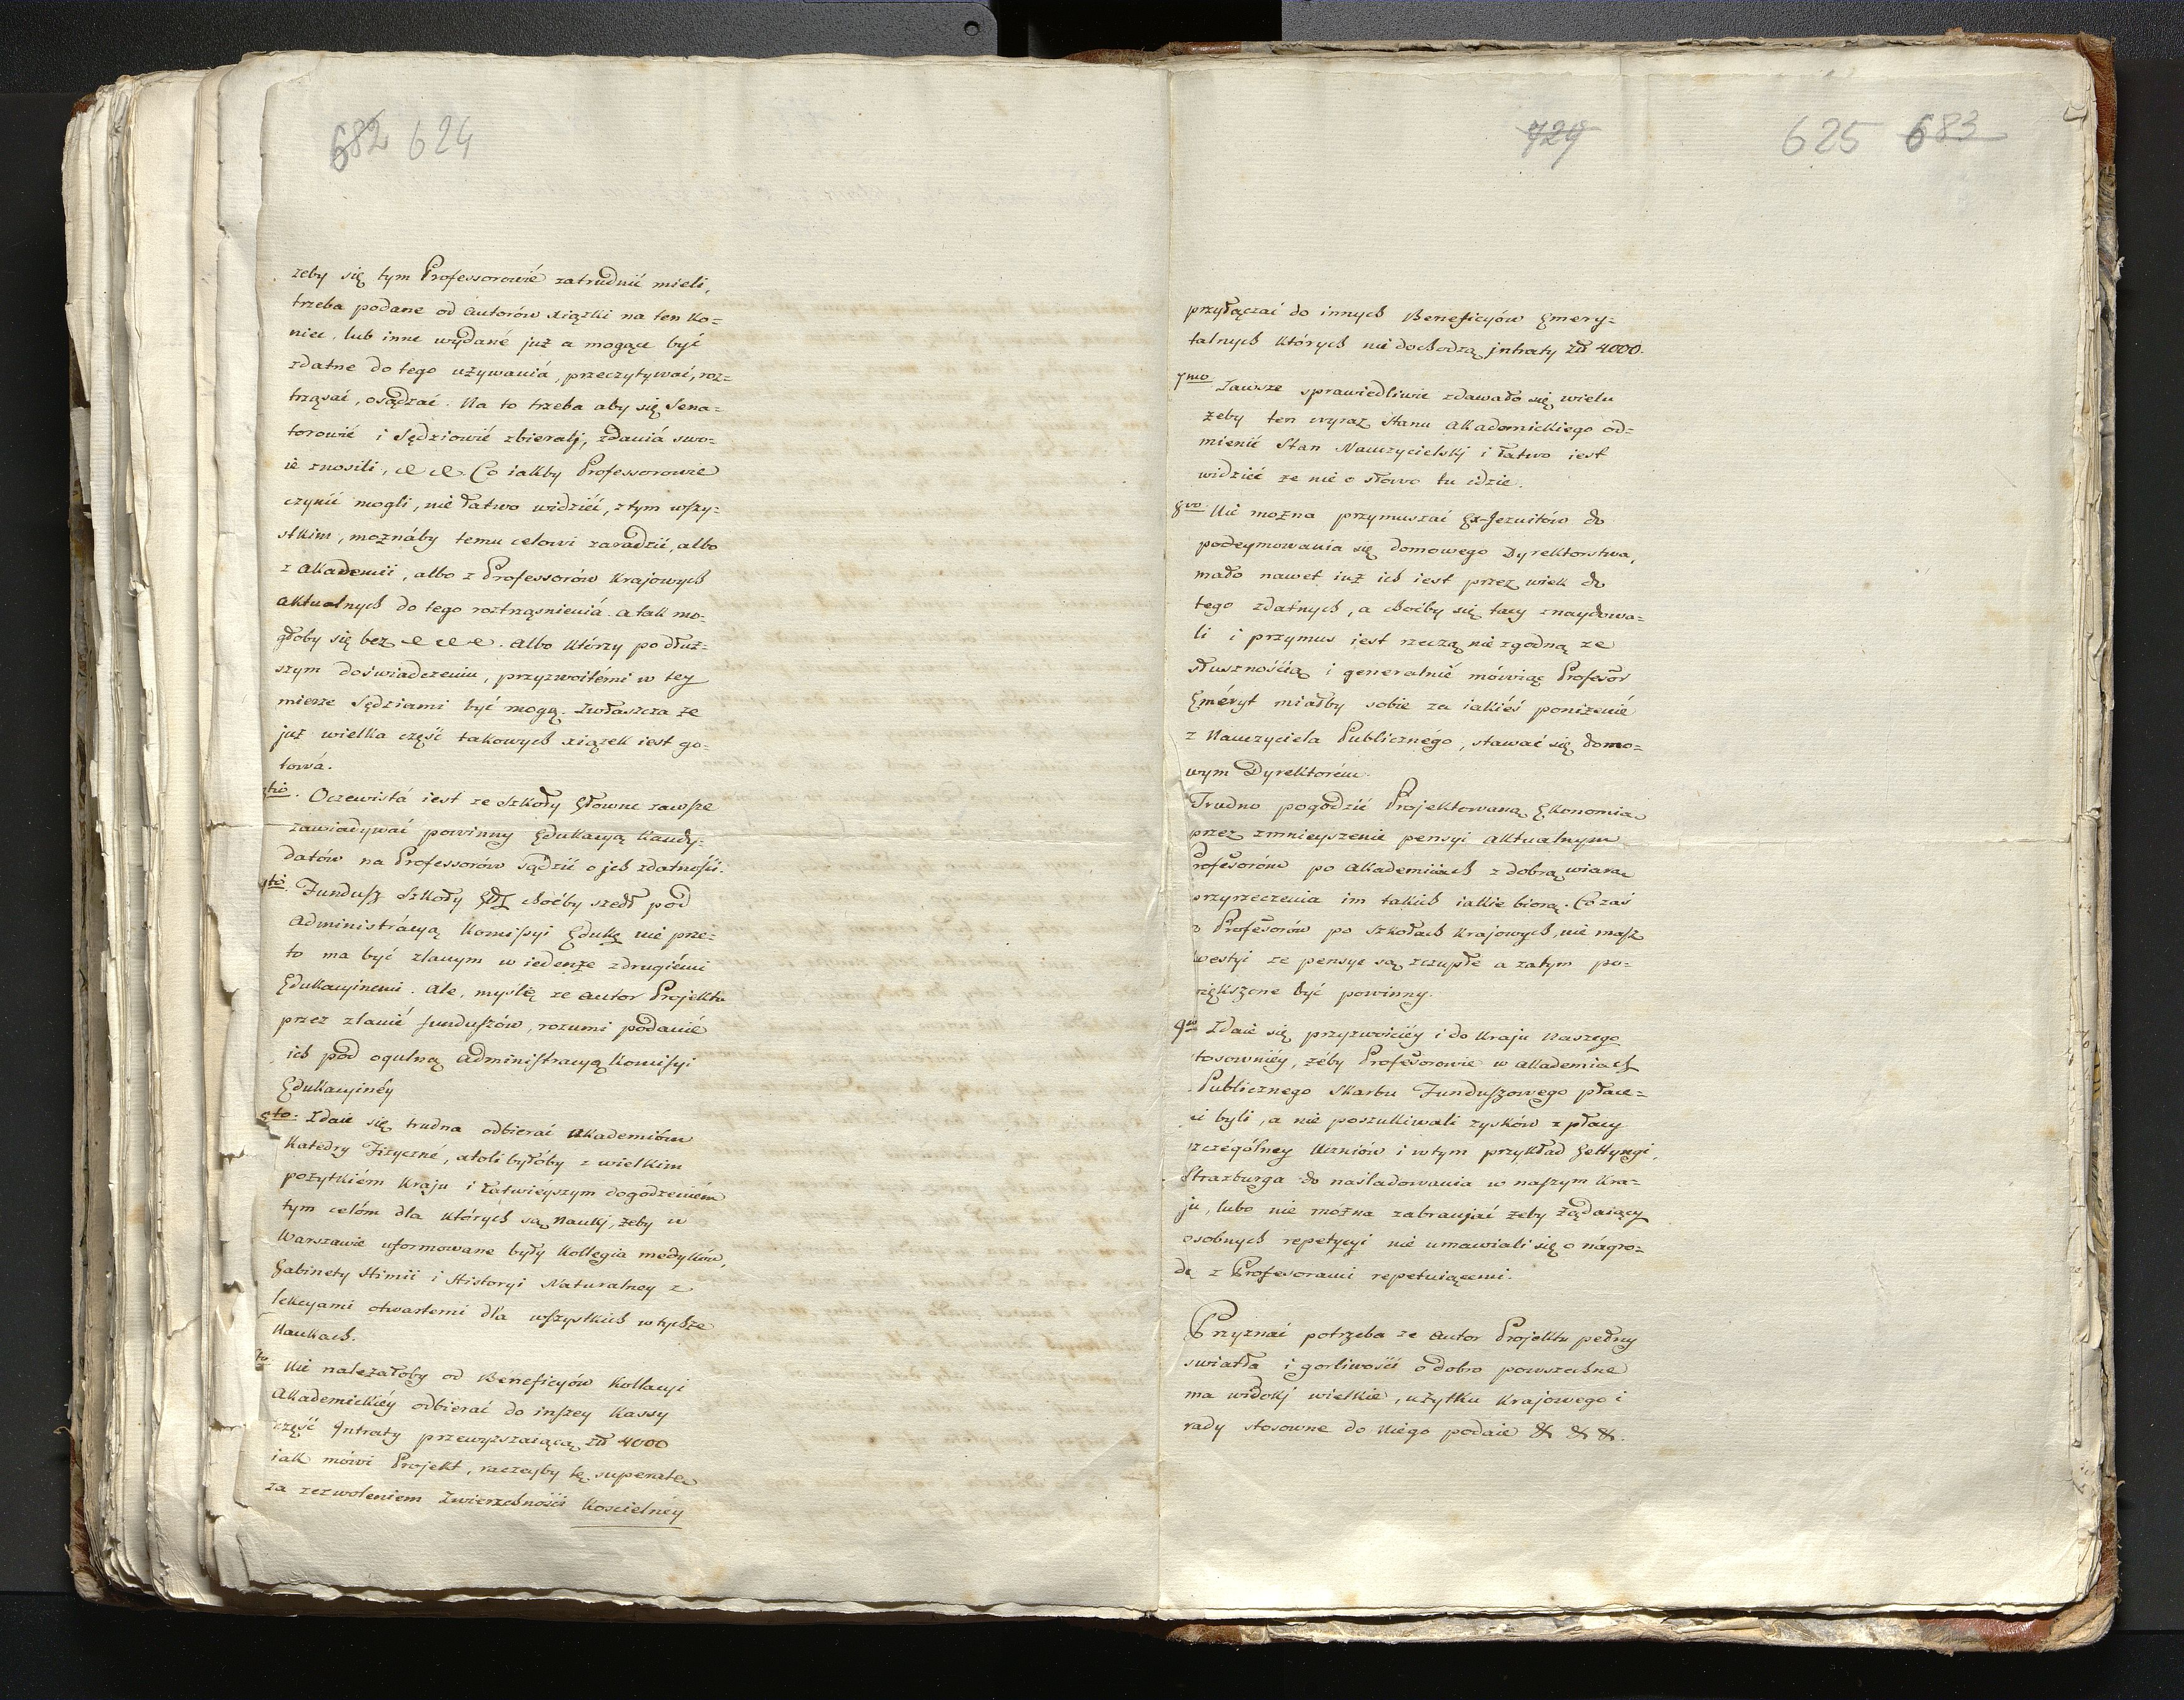 682 624
żeby się tym Professorowie zatrudnić mieli,
trzeba podane od Autorów xiążki na ten ko=
niec, lub inne wydané już a mogące być
zdatne do tego używaniá, przeczytywać, roz=
trząsać, osądzać. Na to trzeba aby się Sena=
torowié i Sędziowié zbieralj, zdaniá swo=
ie znosili, &c &c. Co iakby Professorowie
czynić mogli, nié łatwo widzieć, z tym wszy=
stkim, możnáby temu celowi zaradzić, albo
z Akademii, albo z Professorów Krajowych
Aktualnych do tego roztrząsnieniá. a tak mo=
głoby się bez &c &c &c. Albo którzy po dłuż=
szym doświadczeniu, przyzwoitémi w tey
mierze Sędziami być mogą. Zwłaszcza że
już wielka część takowych xiążek iest go=
towá.
3tió. Oczewistá iest że Szkoły Głowne zawsze
zawiadywać powinny Edukacyą Kandy=
datów na Professorów sądzić o jch zdatności.
4tó. Fundusz Szkoły choćby szedł pod
Administracyą Komissyi Eduką nie prze=
to ma być zlanym w iedenże z drugiémi
Edukacyinemi. Ale, myślę że Autor Projektu
przez zlanié funduszów, rozumi podanié
ich pod ogulną Administracyą Komissyi
Edukacyinéy
5to. Zdaie się trudna odbierać Akademióm
Katedry Fizyczné, atoli byłóby z wielkim
pożytkiém Kraju i łatwiéyszym dogodzeniém
tym celóm dla których są Naukj, żeby w
Warszawie uformowane były Kollegia medyków,
Gabinety Himii i Historyi Naturalney z
lekcyami otwartemi dla wszystkich w tychże
Naukach.
6to Nié należałoby od Beneficyów Kollacyi
Akademickiéy odbierać do inszey Kassy
część Jntraty przewyższaiącą złł 4000
iak mówi Projekt, raczeyby tę superatę
za zezwoleniem Zwierzchności Koscielnéy
729 625 683
przyłączać do innych Beneficyów Emery=
talnych których nié dochodzą jntraty złł 4000.
7mo Zawsze sprawiedliwie zdawało się wielu
żeby ten wyraz Stanu Akademickiego od=
mienić Stan Nauczycielskj i łatwo iest
widzieć że nie o słowo tu idzie.
8vo. Nié można przymuszać Ex-Jezuitów do
podeymowania się domowego Dyrektorstwa,
mało nawet iuż ich iest przez wiek do
tego zdatnych, a choćby się tacy znaydowa=
li i przymus iest rzeczą nie zgodną ze
słusznością i generalnié mówiąc Profesor
Eméryt miałby sobie za iakiéś poniżenié
z Nauczyciela Publicznégo, stawać się domo=
wym Dyrektorém.
Trudno pogodzić Projektowaną Ekonomią
przez zmnieyszenie pensyi Aktualnym
Profesoróm po Akademiiach z dobrą wiarą
przyrzeczenia im takich iakie biorą. Co zaś
Profesorów po Szkołach Krajowych, nié masz
kwestyi że pensye są szczupłe a zatym po=
większone być powinny.
9no Zdaie się przyzwoiciéy i do Kraju Naszego
stosowniéy, żéby Profesorowie w Akademiach
Publicznego Skarbu Funduszowego płace=
ni byli, a nie poszukiwali zysków z płacy
szczególney Uczniów i w tym przykład Gettyngi,
Strazburga do naśladowania w naszym Kra=
ju, lubo nie można zabraniać żeby żądaiący
osobnych repetycyi nié umawiali się o nágro=
dę z Profesorami repetuiącemi.
Przyznać potrzeba że Autor Projektu pełny
światła i gorliwości o dobro powszechne
ma widokj wielkie, użytku Krajowego i
rady stosowne do Niego podaie & & &.